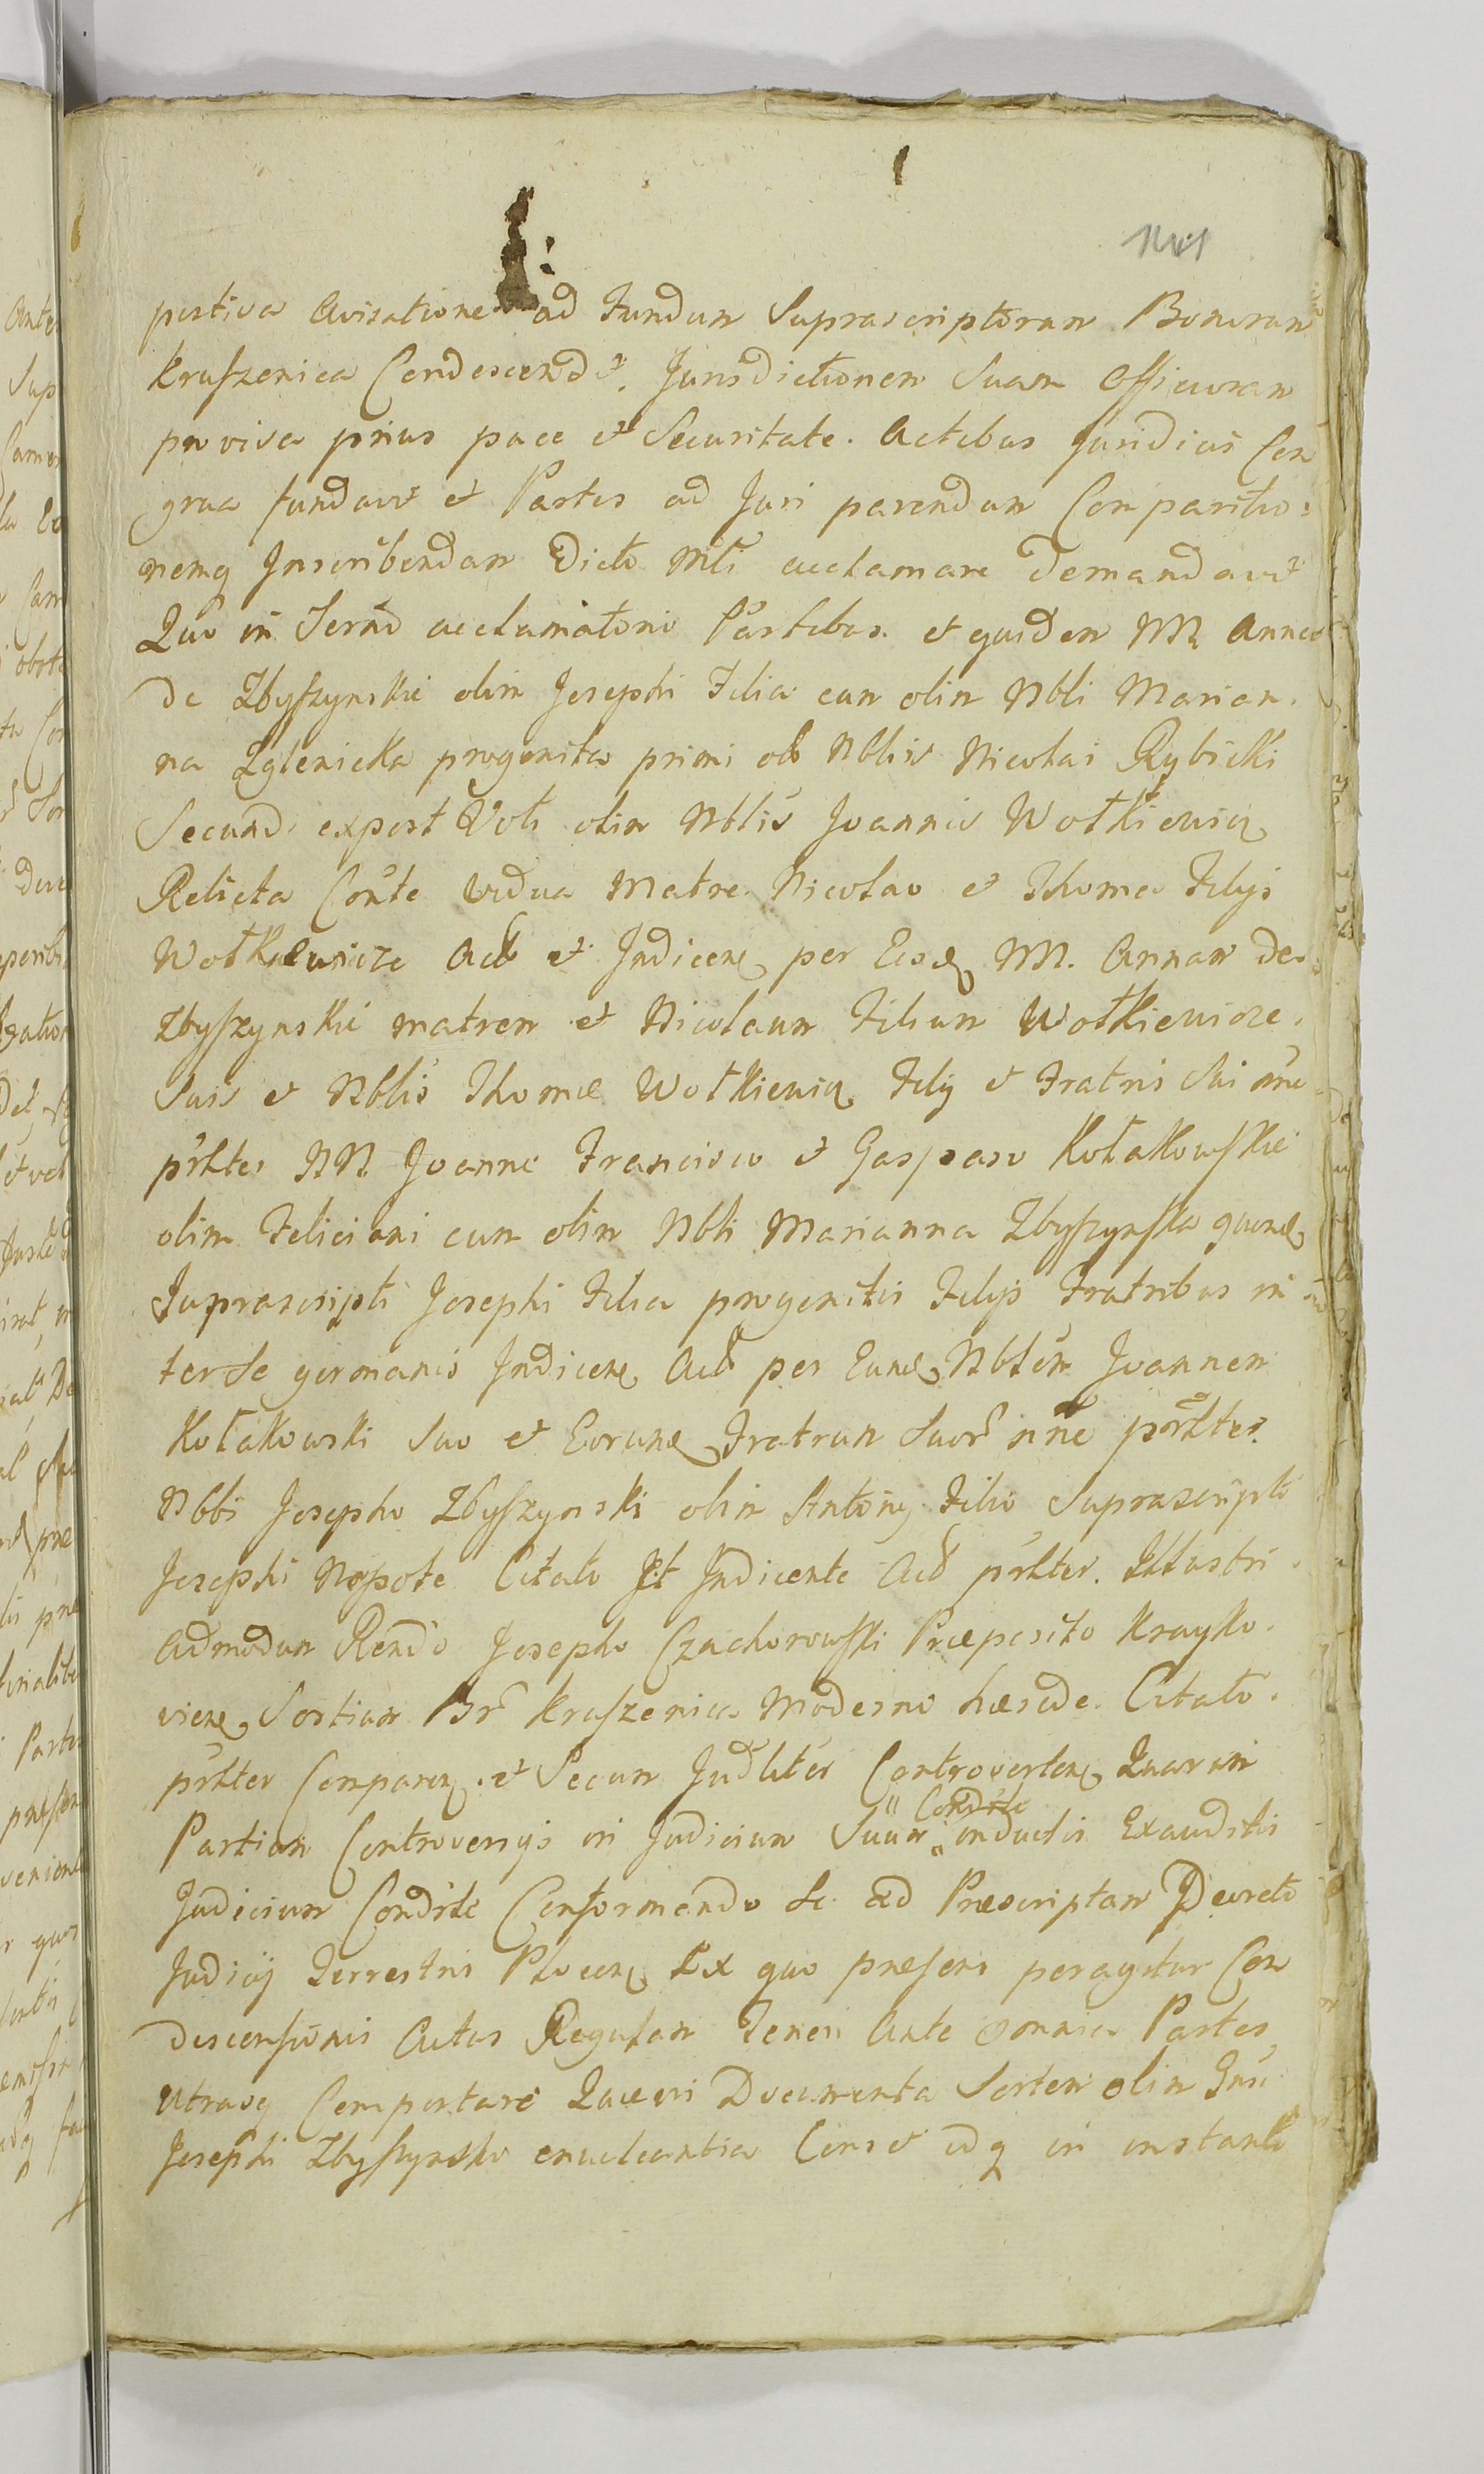 pertiva Avisatione ad Fundum Suprascriptorum Bonorum
Kruszenica Condescend et. Jurisdictionem Suam Officiosam
proviva prius pace et Securitate. Actibus Juridicis Con
grua fundavit et Partes ad Juri parendum Comparitio=
nemq Inscribendam Dicto Mtli acclamare Demandavit
Quo in Termo acclamatorio Partibus. et quidem MM Anna
de Zbyszynskie olim Josephi Filia cum olim Nbli Marian.
na Zglenicka progenita primi olo Nblis Nicolai Rybicki
Secund. expost Voti olim Nblis Joannis Wotkiewicz
Relicta Conte vidua Matre. Nicolao et Thoma Filys
Wotkiewicze Act et Indicen per Eosd MM. Annam de
Zbyszynskie matrem et Nicolaum Filium Wotkiewicze.
Suis et Nblis Thomæ Wotkiewicz Fily et Fratris Sui nne
prltes NN Joanne Francisco et Gasparo Kołakowskie
olim Feliciani cum olim Nbli Marianna Zbyszynska quond
Suprascripti Josephi Filia progenitis Filys Fratribus in
ter Se germanis Indicen Act per Eund Nblem Joannem
Kołakowski Suo et Eorund Fratrum Suor nne prltes.
Nbli Josepho Zbyszynski olim Antony Filio Suprascripti
Josephi Nepote Citato Et Indicente Act prlter. Illustri.
Admodum Rendo Josepho Czachorowski Præposito Krayko.
vien Sortium Br Kruszenica Moderno hærede. Citato.
prlter Comparen. et Secum Judliter Controverten Quarum
Partium Controversys in Judicium Suum Condste inductis Exauditis
Judicium Condste Conformando Se ad Præscriptam Decreto
Judicÿ Terrestris Plocen Ex quo præsens peragitur Con
descensionis Actus Regulam Teneri Ante omnia Partes
utrasq Comportare Quævis Documenta Sortem olim Gnsi
Josephi Zbyszynsko enucleantia Cens et idq in instanti